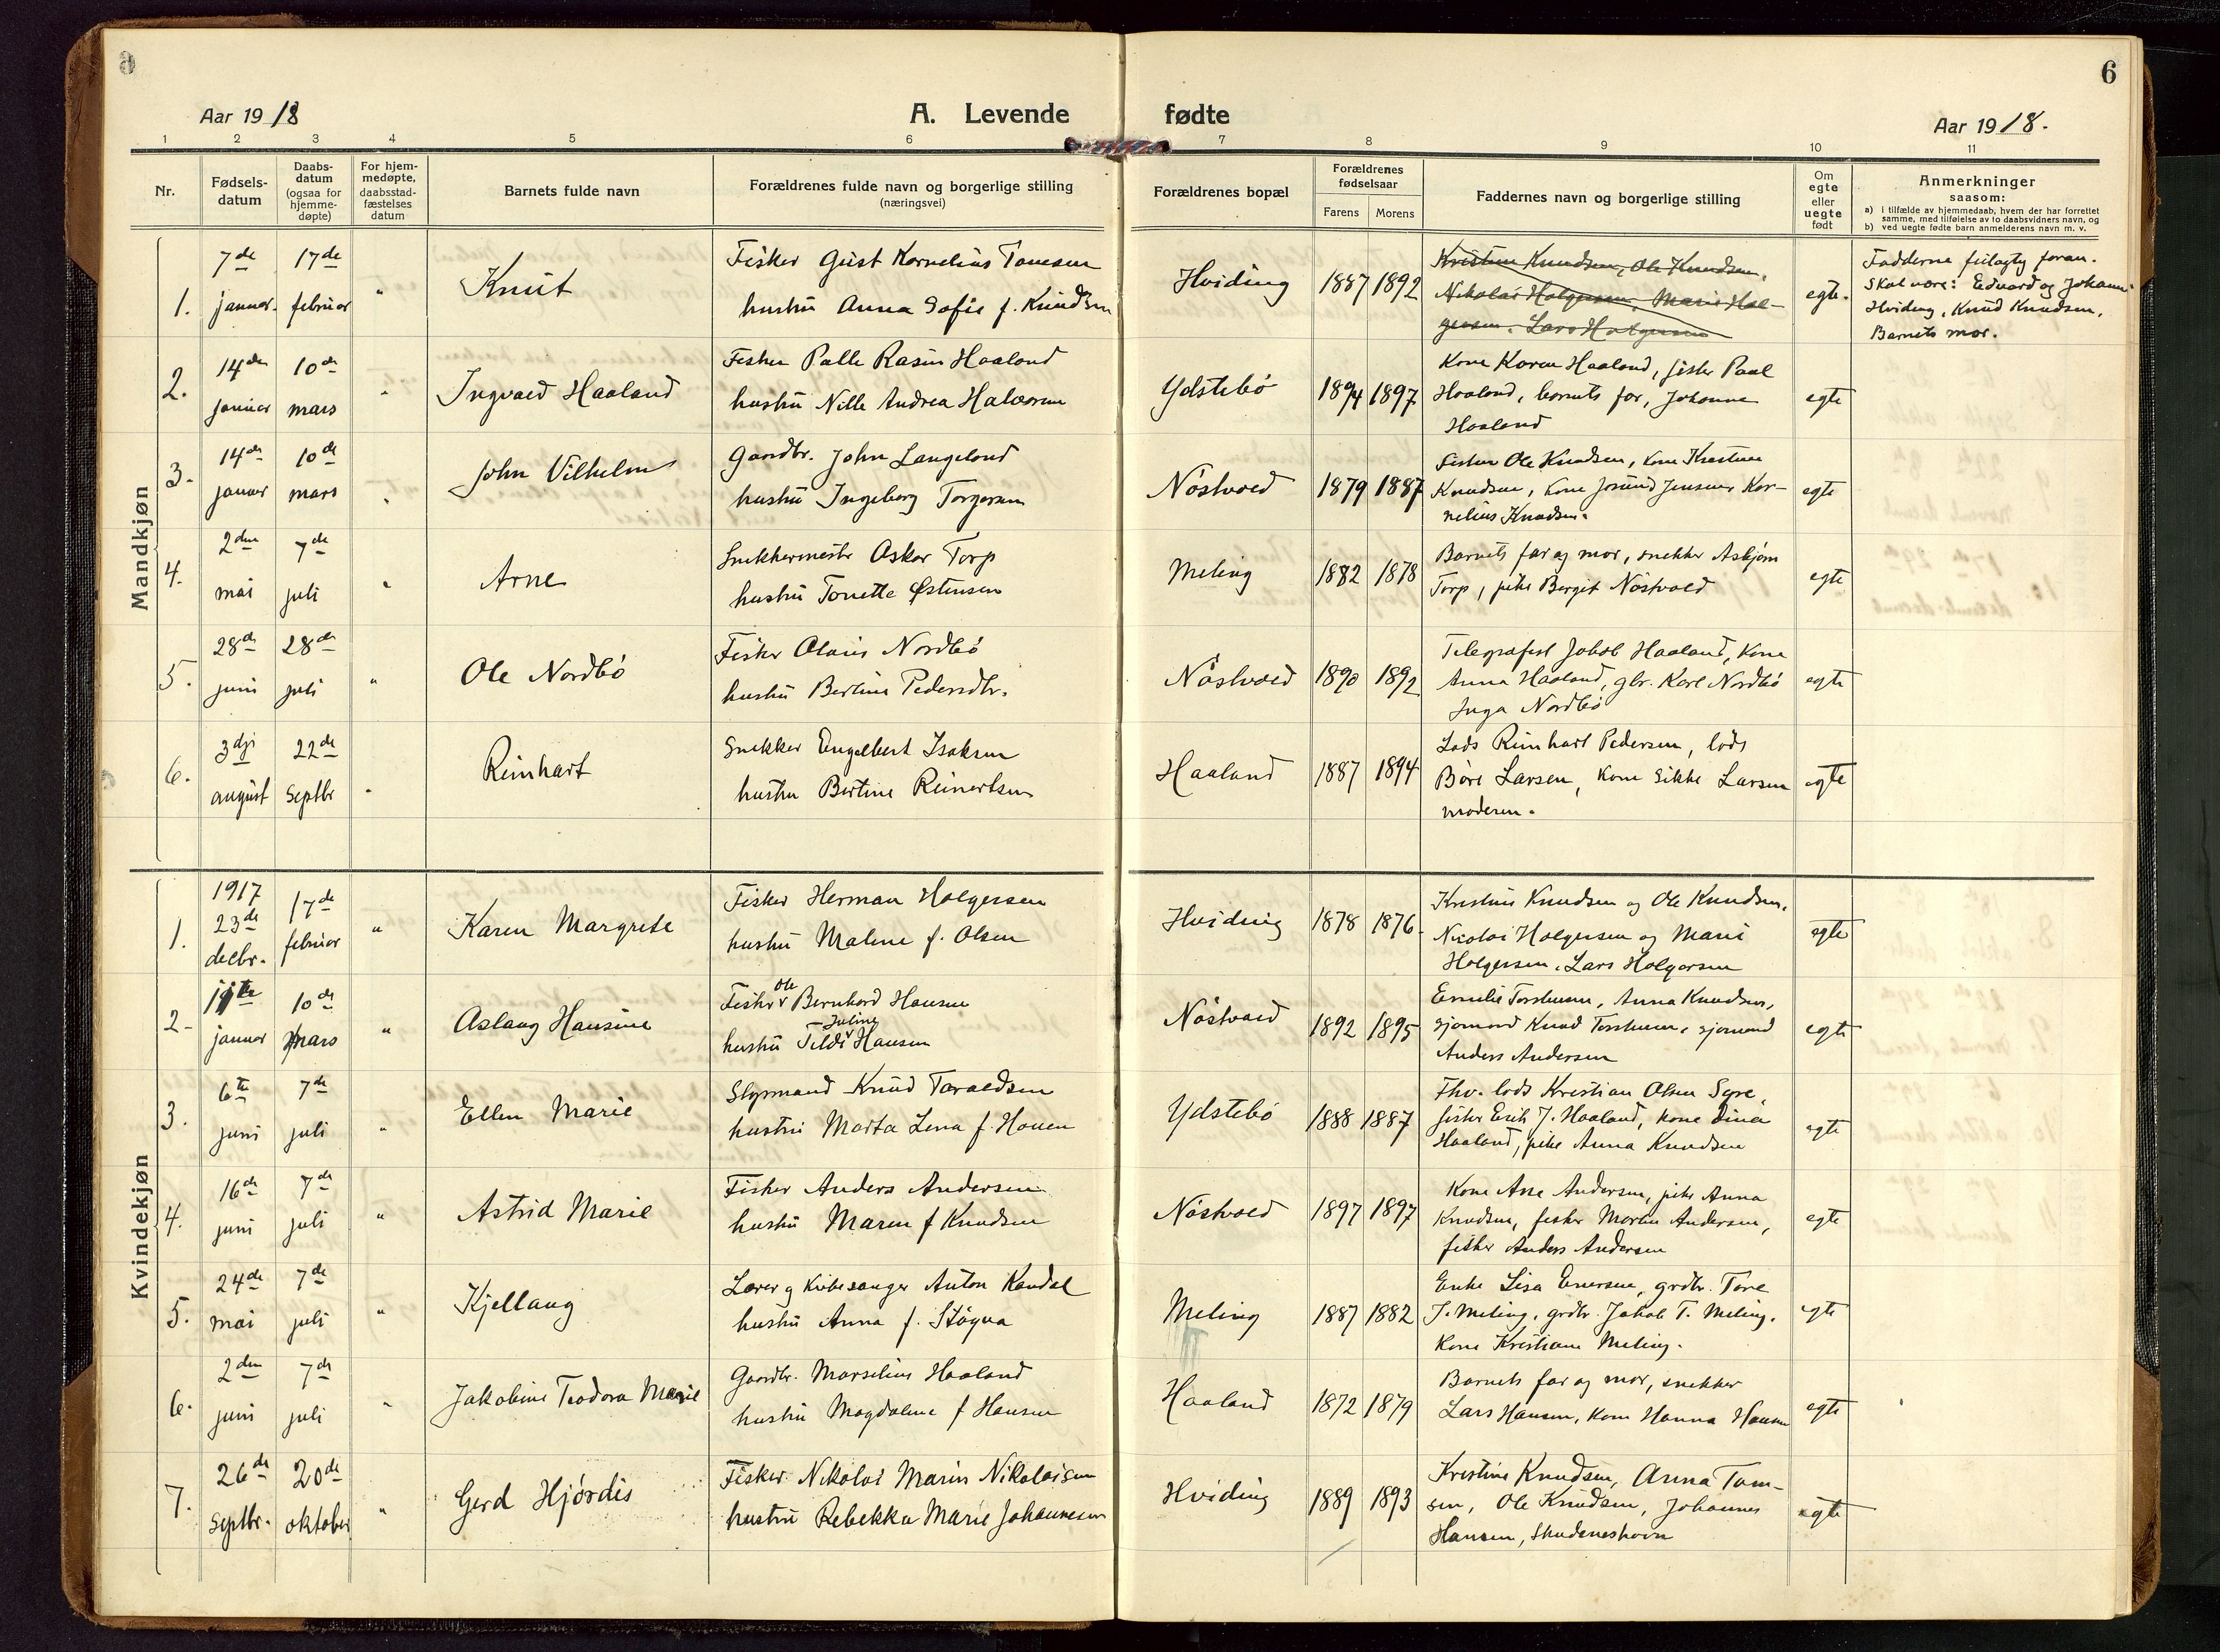 6
Aar 1918
A. Levende fødte
Aar 1918.
6
1 2 3 4 5 6 7 8 9 10 11
Nr.
Fødsels-
datum
Daabs-
datum
(ogsaa for
hjemme-
døpte)
For hjem-
medøpte,
daabsstad-
fæstelses
datum
Barnets fulde navn
Forældrenes fulde navn og borgerlige stilling
(næringsvei)
Forældrenes bopæl
Forældrenes
fødselsaar
Farens Morens
Faddernes navn og borgerlige stilling
Om
egte
eller
uegte
født
Anmerkninger
saasom:
a) i tilfælde av hjemmedaab, hvem der har forrettet
samme, med tilføielse av to daabsvidners navn, og
b) ved uegte fødte barn anmelderens navn m. v.
Mandkjøn
1.
7de
januar.
17de
februar
"
Knut
Fisker Gust Kornelius Tonesen
hustru Anna Sofie f. Knudsen
Hviding
1887 1892
Kristine Knudsen, Ole Knudsen,
Nikolai Holgersen, Marie Hol-
gersen. Lars Holgersen
egte.
Fadderne feilagtig foran.
Skal være: Edvard og Johann
Hviding, Knud Knudsen,
Barnets mor.
2.
14de
januar
10de
mars
"
Ingvald Haaland
Fisker Palle Rasin Haaland
hustru Nille Andrea Halvorsen
Ydstebö
1894 1897
Kone Karen Haaland, fisker Paul
Haaland, barnets far, Johanne
Haaland
egte
3.
14de
januar
10de
mars
"
John Vilhelm
Gaardbr. John Langeland
hustru Ingeborg Torgersen
Nöstvold
1879 1887
Fisker Ole Knudsen, kone Kristine
Knudsen, kone Josund Jensen, Kor-
nelius Knudsen.
egte
4.
2den
mai
7de
juli
"
Arne
Snekkermestr Askar Torp
hustru Tonette Østensen
Meling
1882 1878
Barnets far og mor, snekker Asbjørn
Torp, pike Bergit Nöstvold
egte
5.
28de
juni
28de
juli
"
Ole Nordbö
Fisker Olaus Nordbö
hustru Bertine Pedersdtr.
Nöstvold
1890 1892
Telegrafist Jakob Haaland, Kone
Anna Haaland, gbr. Karl Nordbö
Inga Nordbö
egte
6.
3dje
august
22de
Septbr
"
Reinhart
Snekker Engelbert Isaksen
hustru Bertine Reinertsen
Haaland
1887 1894
Lods Reinhart Pedersen, lods
Böre Larsen, kone Sikke Larsen
moderen.
egte
Kvindekjøn
1.
1917
23de
decbr.
17de
februar
"
Karen Margrete
Fisker Herman Holgersen
hustru Malene f. Olsen
Hviding
1878 1876
Kristine Knudsen og Ole Knudsen,
Nicolai Holgersen og Marie
Holgersen. Lars Holgersen
egte
2.
januar
10de
mars
"
Aslaug Hansine
Fisker Ole Bernhard Hansen
hustru Tilda Juline Hansen
Nöstvold
1892 1895
Emilie Torstensen, Anna Knudsen,
sjømand Knud Torstensen, sjømand
Anders Andersen
egte
3.
6te
juni
7de
juli
"
Ellen Marie
Styrmand Knud Taraldsen
hustru Marta Lena f. Houen
Ydstebö
1888 1887
Fhv. lods Kristian Olsen Syre,
fisker Erik J. Haaland, kone Dina
Haaland, pike Anna Knudsen
egte
4.
16de
juni
7de
juli
"
Astrid Marie
Fisker Anders Andersen
hustru Maren f Knudsen
Nöstvold
1897 1897
Kone Ane Andersen, pike Anna
Knudsen, fisker Martin Andersen,
fisker Anders Andersen
egte
5.
24de
mai
7de
juli
"
Kjellaug
Lærer g Kirkesanger Anton Kandal
hustru Anna f. Stögva
Meling
1887 1882
Enke Lisa Enersen, grdbr. Tore
J. Meling, grdbr. Jakob T. Meling.
Kone Kristiane Meling.
egte
6.
2den
juni
7de
juli
"
Jakobine Teodora Marie
Gaardbr. Marselius Haaland
hustru Magdalene f Hansen
Haaland
1872 1879
Barnets far og mor, snekker
Lars Hansen, kone Hanna Hansen
egte
7.
26de
septbr.
20de
oktober
"
Gerd Hjördis
Fisker Nikolai Marin Nikolaisen
hustru Rebekka Marie Johannesen
Hviding
1889 1893
Kristine Knudsen, Anna Tom-
sen, Ole Knudsen, Johannes
Hansen, Skudeneshavn
egte